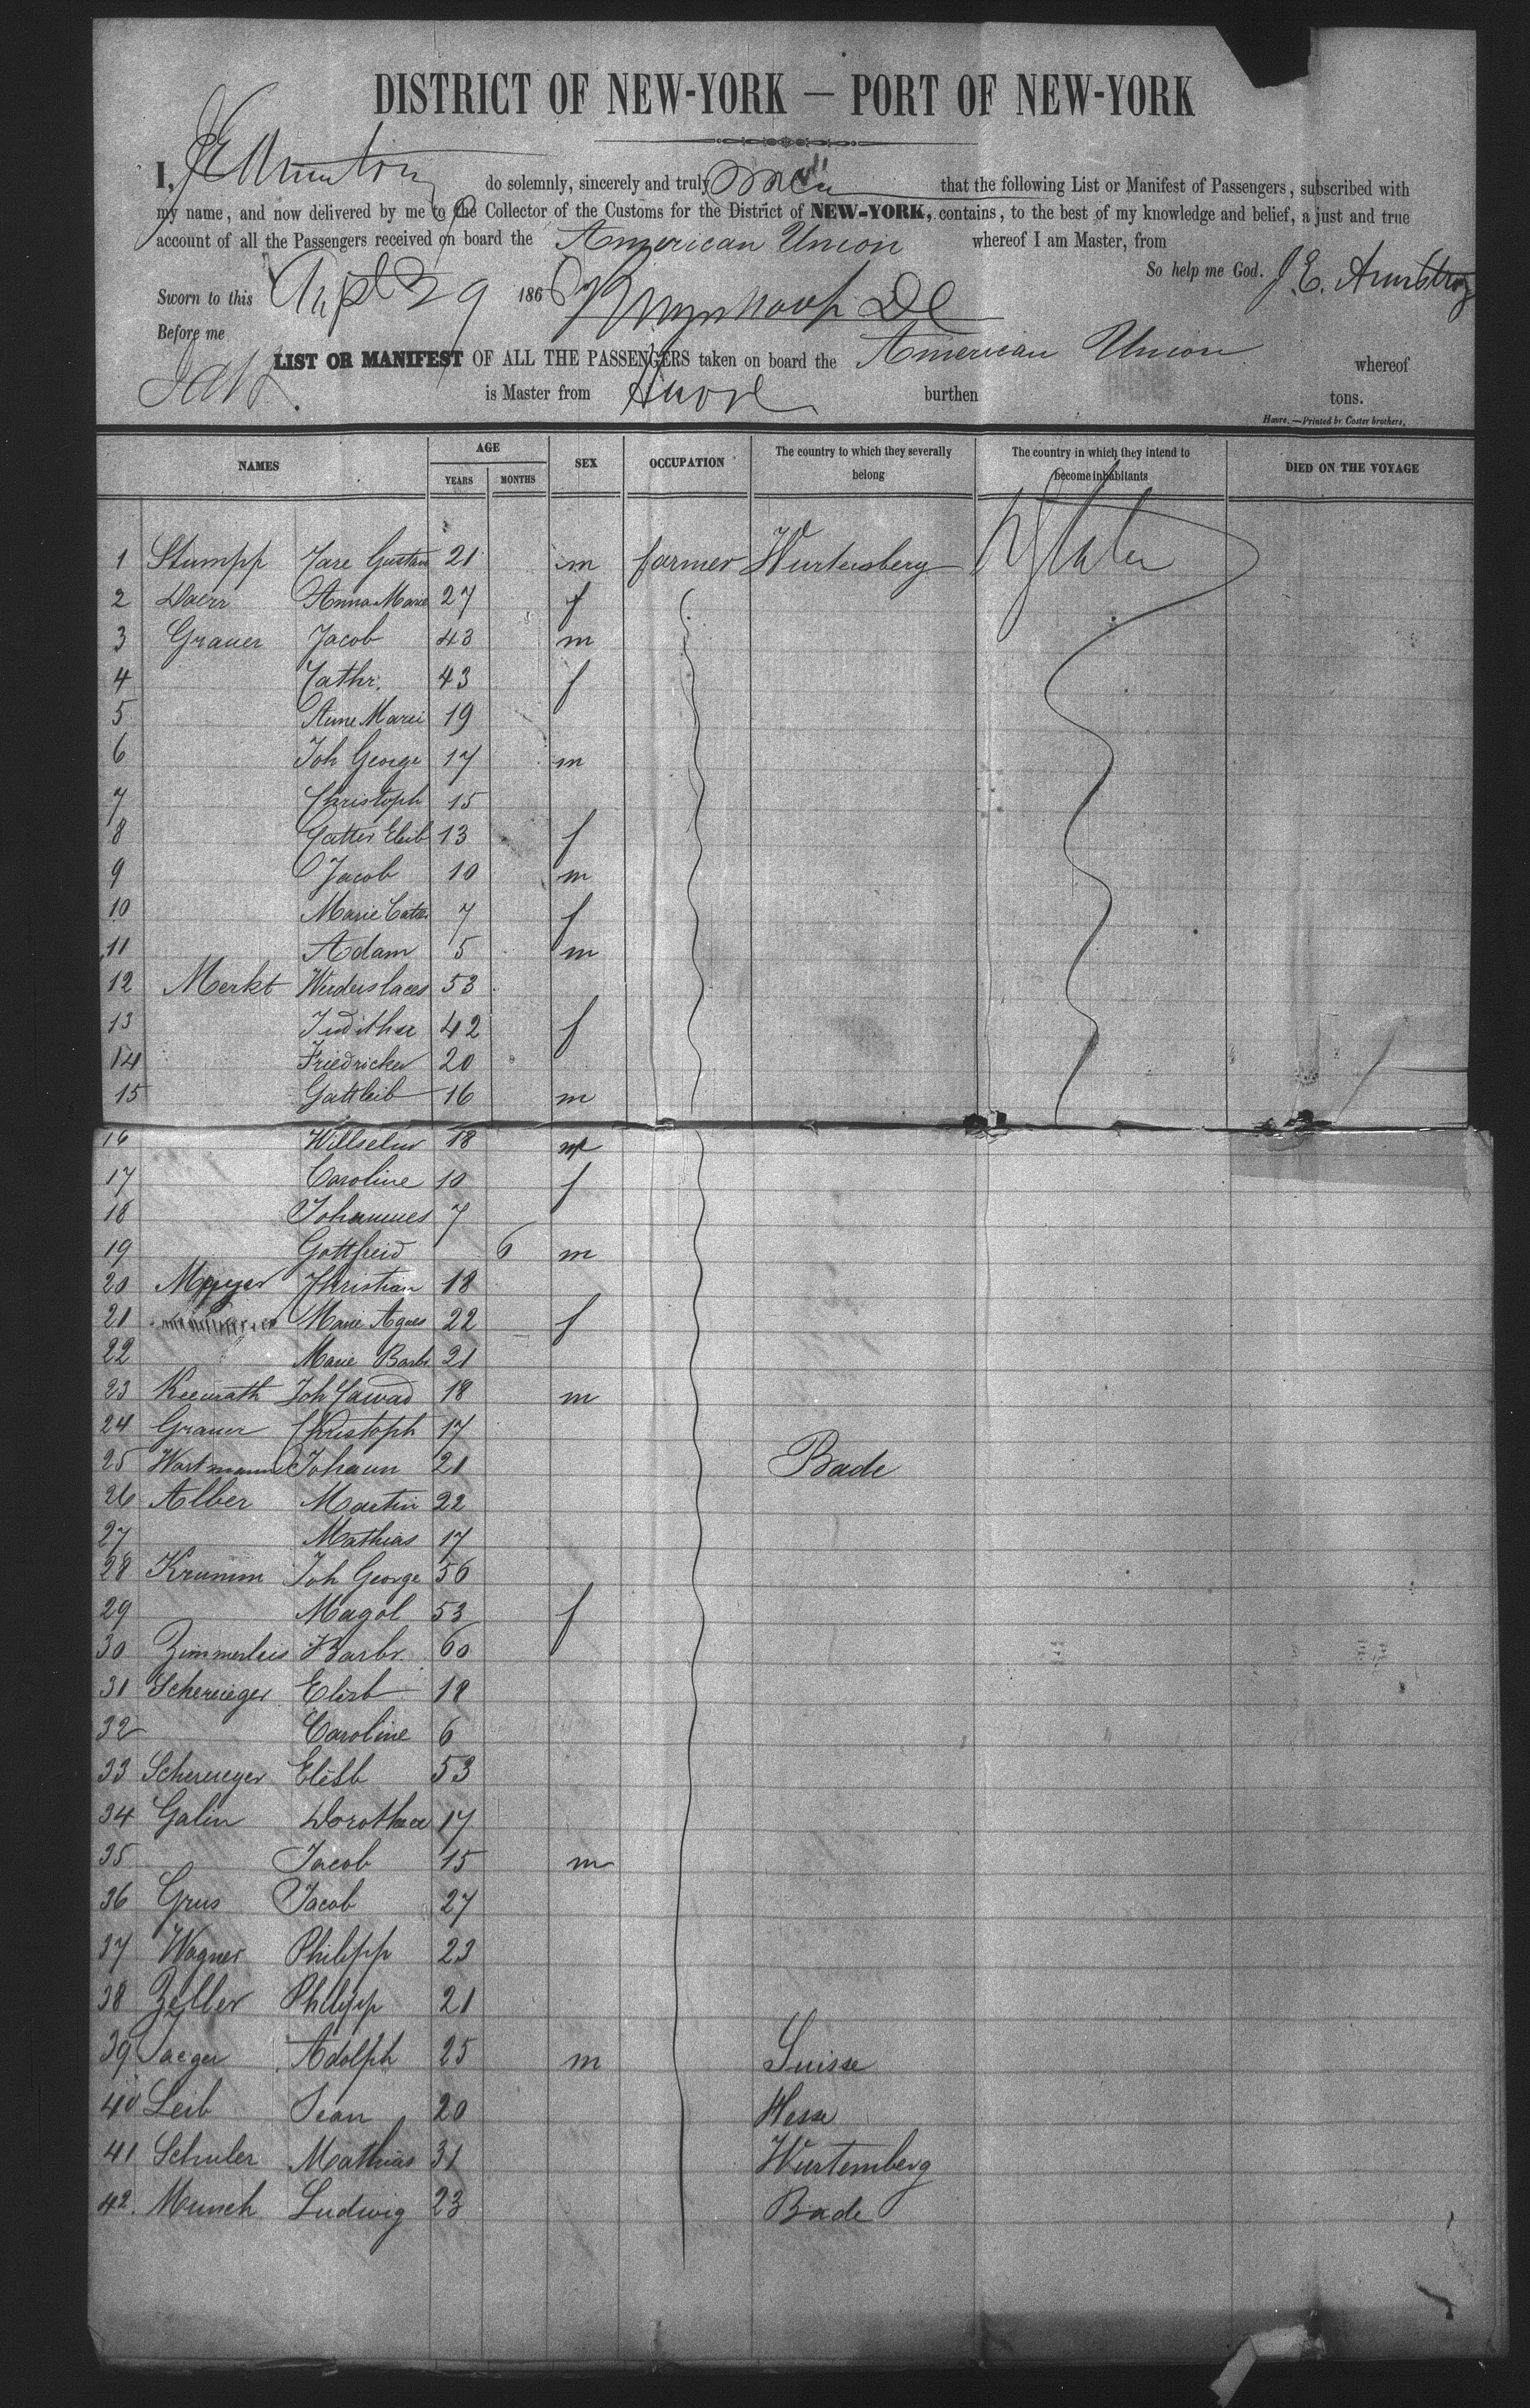 DISTRICT OF NEW-YORK — PORT OF NEW-YORK
I, do solemnly, sincerely and truly that the following List or Manifest of Passengers, subscribed with
my name, and now delivered by me to the Collector of the Customs for the District of NEW-YORK, contains, to the best of my knowledge and belief, a just and true
account of all the Passengers received on board the American Union whereof I am Master, from
So help me God. J. E. Armstrong
Sworn to this 29 1866
Before me
LIST OR MANIFEST OF ALL THE PASSENGERS taken on board the American Union whereof
is Master from burthen tons.
Havre. — Printed by Coster brothers.
NAMES AGE YEARS MONTHS SEX OCCUPATION The country to which they severally belong The country in which they intend to become inhabitants DIED ON THE VOYAGE
1 Stumpp Gustav 21 m farmer Wurtemberg
2 Anna Marie 27 f
3 Grauer Jacob 43 m
4 Cathr. 43 f
5 Anne Marei 19
6 Joh George 17 m
7 Christoph 15
8 13 f
9 Jacob 10 m
10 Marie Cath 7 f
11 Adam 5 m
12 Merkt 53
13 Judithe 42 f
14 20
15 Gottleib 16 m
16 18
17 Caroline 10 f
18 Johannes 7
19 Gottfreid 6 m
20 Christian 18
21 Marie Agnes 22 f
22 Marie Barb. 21
23 Joh 18 m
24 Grauer Christoph 17
25 Wortmann Johann 21 Bade
26 Alber Martin 22
27 Mathias 17
28 Krumm Joh George 56
29 Magol 53 f
30 Barbr. 60
31 Elisb 18
32 Caroline 6
33 Elisb 53
34 Galin Dorothee 17
35 Jacob 15 m
36 Grus Jacob 27
37 Wagner Philipp 23
38 Zeller Philipp 21
39 Jaeger Adolph 25 m Suisse
40 Leib Jean 20 Hesse
41 Schuler Mathias 31 Wurtemberg
42. Munch Ludwig 23 Bade